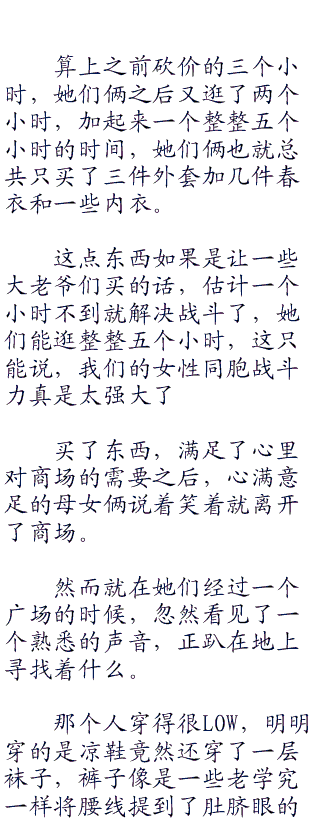 算上之前砍价的三个小
时，她们俩之后又逛了两个
小时，加起来一个整整五个
小时的时间，她们俩也就总
共只买了三件外套加几件春
衣和一些内衣。
这点东西如果是让一些
大老爷们买的话，估计一个
小时不到就解决战斗了，她
们能逛整整五个小时，这只
能说，我们的女性同胞战斗
力真是太强大了
买了东西，满足了心里
对商场的需要之后，心满意
足的母女俩说着笑着就离开
了商场。
然而就在她们经过一个
广场的时候，忽然看见了一
个熟悉的声音，正趴在地上
寻找着什么。
那个人穿得很LOW，明明
穿的是凉鞋竟然还穿了一层
袜子，裤子像是一些老学究
一样将腰线提到了肚脐眼的